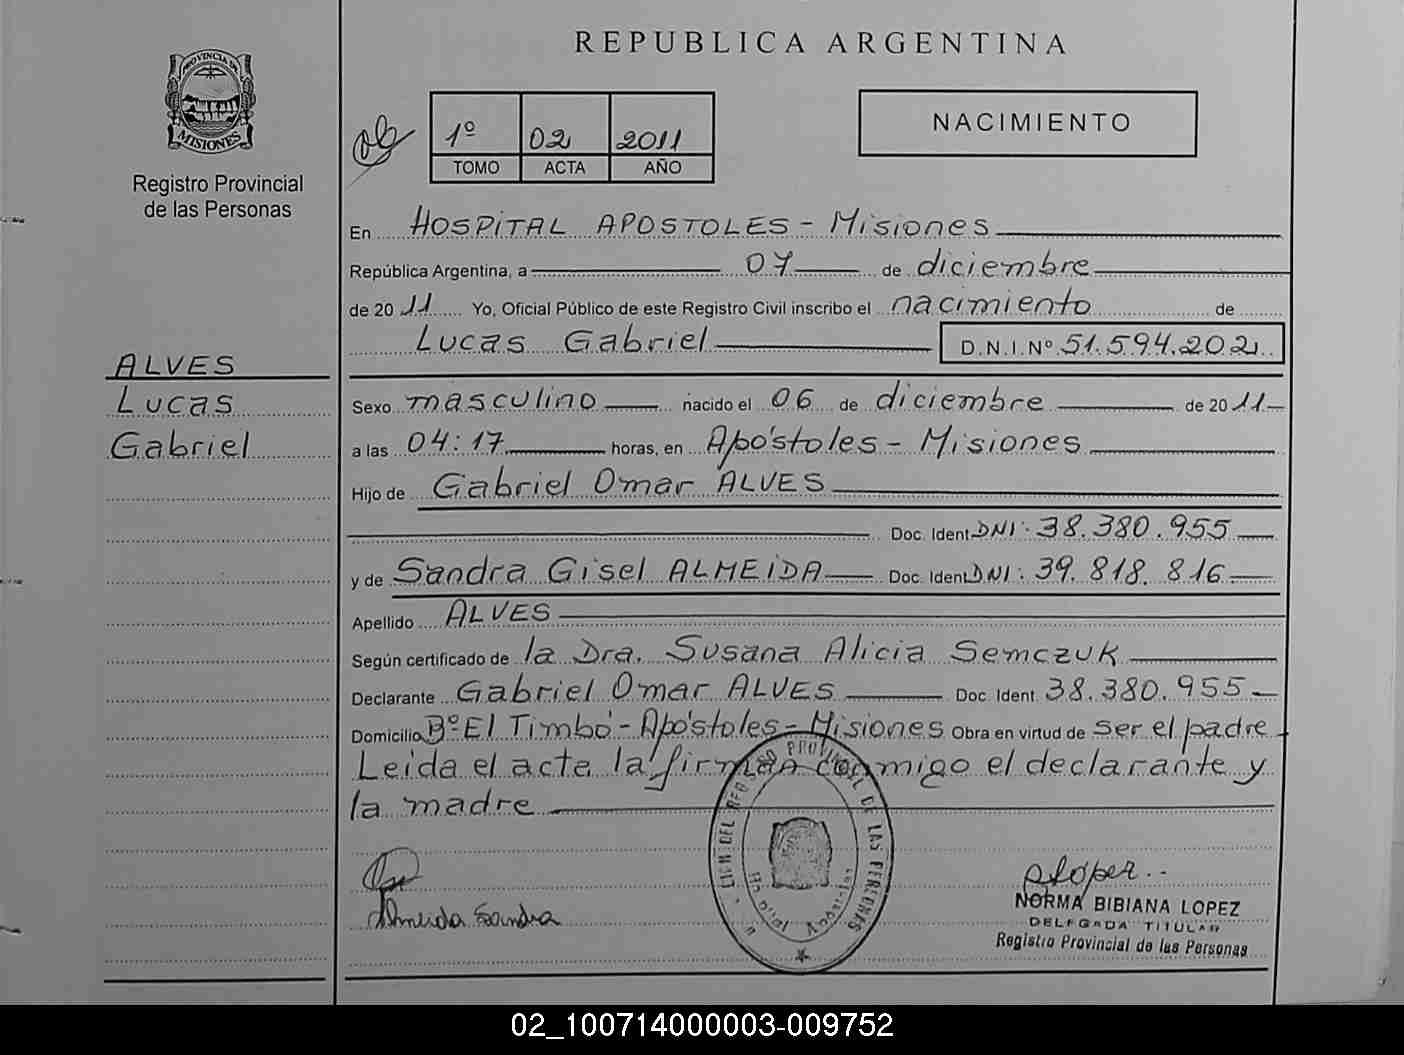 REPUBLICA ARGENTINA
PROVINCIA DE
MISIONES
Registro Provincial
de las Personas
1º 02 2011
TOMO ACTA AÑO
NACIMIENTO
En HOSPITAL APOSTOLES - Misiones
República Argentina, a 07 de diciembre
de 2011 Yo, Oficial Público de este Registro Civil inscribo el nacimiento de
Lucas Gabriel D.N.I.Nº 51.594.202
ALVES
Lucas
Gabriel
Sexo masculino nacido el 06 de diciembre de 2011
a las 04:17 horas, en Apóstoles - Misiones
Hijo de Gabriel Omar ALVES
Doc. Ident. DNI: 38.380.955
y de Sandra Gisel ALMEIDA Doc. Ident. DNI: 39.818.816
Apellido ALVES
Según certificado de la Dra. Susana Alicia Semczuk
Declarante Gabriel Omar ALVES Doc. Ident. 38.380.955
Domicilio Bº El Timbó - Apóstoles - Misiones Obra en virtud de ser el padre
Leída el acta la firman conmigo el declarante y
la madre
Almeida Sandra
DEL REGISTRO PROVINCIAL DE LAS PERSONAS
Hospital Apóstoles
NORMA BIBIANA LOPEZ
DELEGADA TITULAR
Registro Provincial de las Personas
02_100714000003-009752